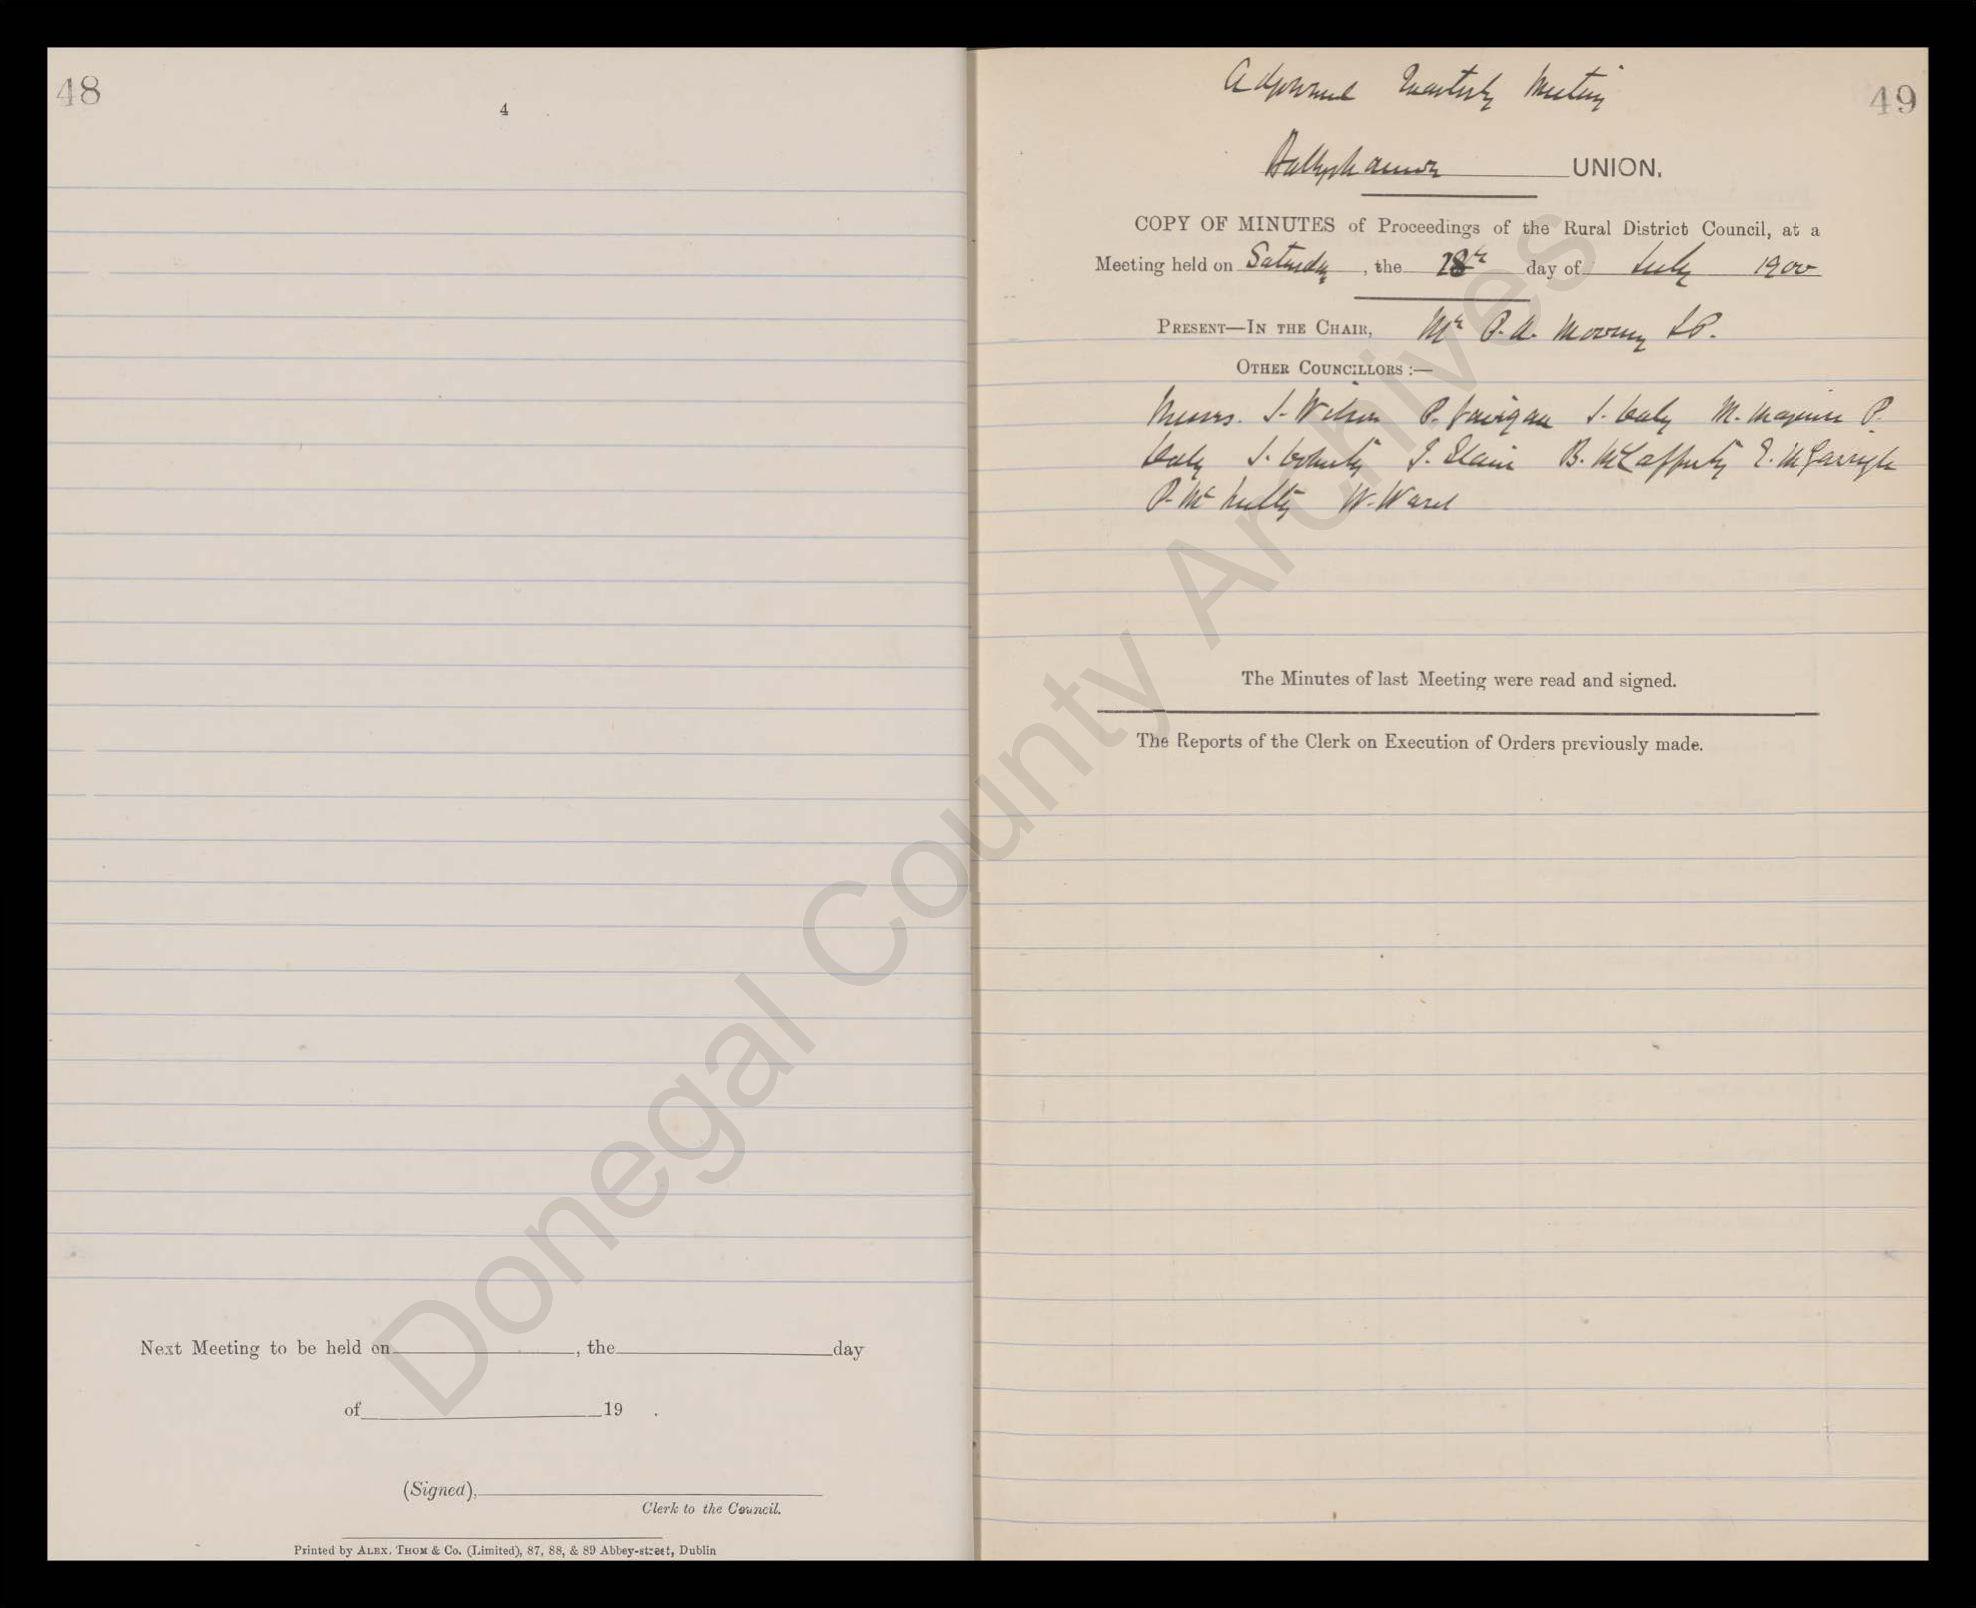 48
4
Next Meeting to be held on , the day
of 19 .
(Signed),
Clerk to the Council.
Printed by ALEX. THOM & Co. (Limited), 87, 88, & 89 Abbey-street, Dublin
49
Adjourned Quarterly Meeting
Ballyshannon UNION.
COPY OF MINUTES of Proceedings of the Rural District Council, at a
Meeting held on Saturday, the 28th day of July 1900
PRESENT—IN THE CHAIR, Mr P. A. J.P.
OTHER COUNCILLORS :—
Messrs. J. Wilson P. J. Daly M. Maguire P.
Daly J. Doherty J. B. McCafferty E. McGarrigle
P. McNulty W. Ward
The Minutes of last Meeting were read and signed.
The Reports of the Clerk on Execution of Orders previously made.
Donegal County Archives